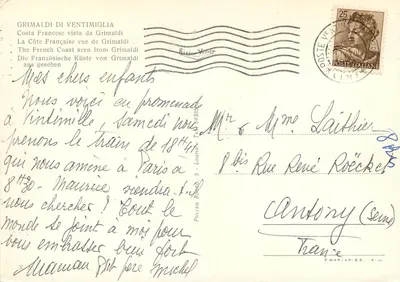 GRIMALDI DI VENTIMIGLIA
Costa Francese vista da Grimaldi
La Côte Française vue de Grimaldi
The French Coast seen from Grimaldi
Die Französische Küste von Grimaldi
aus gesehen
Mes chers enfants
Nous voici en promenade
à Vintimille, Samedi nous
prenons le train de 18H41
qui nous amène à Paris à
8H30 - Maurice viendra-t-il
nous chercher ? Tout le
monde se joint à moi pour
vous embrasser bien fort
Maman Ptit père Michel
Mr & Mme Laithier
8 bis Rue René Roëckel
Antony (Seine)
France
POSTE ITALIANE